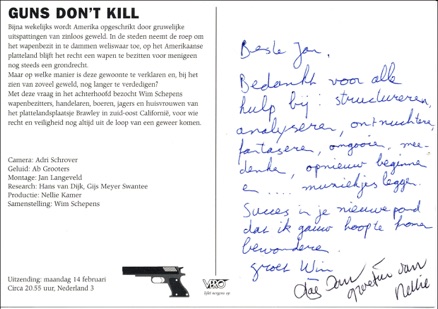 GUNS DON'T KILL
Bijna wekelijks wordt Amerika opgeschrikt door gruwelijke
uitspattingen van zinloos geweld. In de steden neemt de roep om
het wapenbezit in te dammen weliswaar toe, op het Amerikaanse
platteland blijft het recht een wapen te bezitten voor menigeen
nog steeds een grondrecht.
Maar op welke manier is deze gewoonte te verklaren en, bij het
zien van zoveel geweld, nog langer te verdedigen?
Met deze vraag in het achterhoofd bezocht Wim Schepens
wapenbezitters, handelaren, boeren, jagers en huisvrouwen van
het plattelandsplaatsje Brawley in zuid-oost Californië, voor wie
recht en veiligheid nog altijd uit de loop van een geweer komen.
Camera: Adri Schrover
Geluid: Ab Grooters
Montage: Jan Langeveld
Research: Hans van Dijk, Gijs Meyer Swantee
Productie: Nellie Kamer
Samenstelling: Wim Schepens
Uitzending: maandag 14 februari
Circa 20.55 uur, Nederland 3
VPRO
Beste Jan,
Bedankt voor alle
hulp bij: structureren,
analyseren, ontnuchteren,
fantaseren, omgooien, mee-
denken, opnieuw beginnen
e.... muziekjes leggen.
Succes in je nieuwe pand
dat ik gauw hoop te komen
bewonderen.
Groet Wim
Dag Jan
groeten van
Nellie